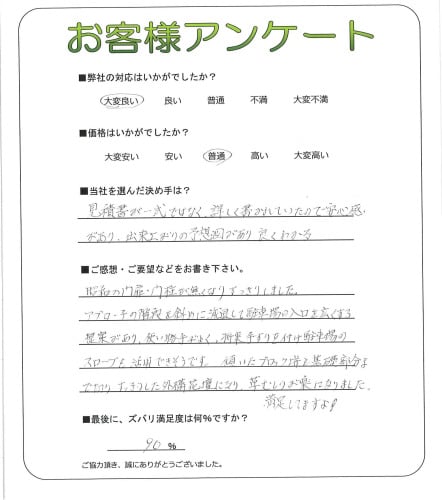 お客様アンケート
■弊社の対応はいかがでしたか？
大変良い 良い 普通 不満 大変不満
■価格はいかがでしたか？
大変安い 安い 普通 高い 大変高い
■当社を選んだ決め手は？
見積書が一式ではなく、詳しく書かれていたので安心感
があり、出来上がりの予想図があり良くわかる
■ご感想・ご要望などをお書き下さい。
昭和の門扉・門柱が無くなりすっきりしました。
アプローチの階段を斜めに減退して駐車場の入口を広くする
提案があり、使い勝手がよく、将来手すりを付け駐車場の
スロープも活用できそうです。傾いたブロック塀と基礎部分ま
ですっきりした外構花壇になり、草むしりが楽になりました。
満足してますよ
■最後に、ズバリ満足度は何%ですか？
90 %
ご協力頂き、誠にありがとうございました。